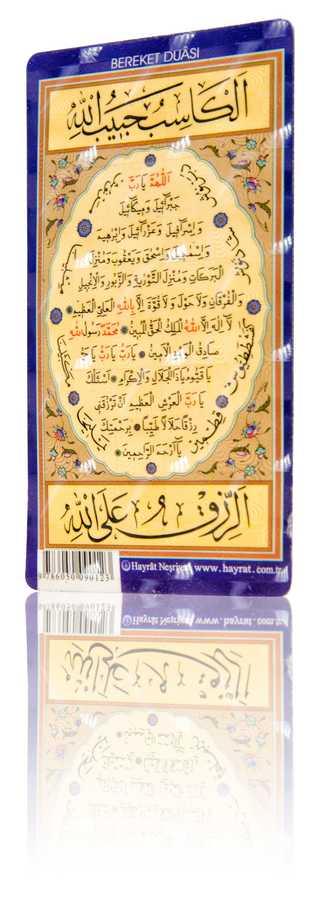 BEREKET DUÂSI
اَلْكَاسِبُ حَبِيبُ اللهِ
اَللّٰهُمَّ يَا رَبَّ
جَبْرَائِيلَ وَمِيكَائِيلَ
وَاِسْرَافِيلَ وَعَزْرَائِيلَ وَاِبْرٰهِيمَ
وَاِسْمٰعِيلَ وَاِسْحٰقَ وَيَعْقُوبَ وَمُنْزِلَ
الْبَرَكَاتِ وَمُنْزِلَ التَّوْرٰيةِ وَالزَّبُورِ وَالْاِنْجِيلِ
وَالْفُرْقَانِ وَلَا حَوْلَ وَلَا قُوَّةَ اِلَّا بِاللهِ الْعَلِيِّ الْعَظِيمِ
لَا اِلٰهَ اِلَّا اللهُ الْمَلِكُ الْحَقُّ الْمُبِينُ مُحَمَّدٌ رَسُولُ اللهِ
صَادِقُ الْوَعْدِ الْاَمِينُ يَا رَبِّ يَا رَبِّ يَا حَيُّ
يَا قَيُّومُ يَا ذَا الْجَلَالِ وَالْاِكْرَامِ اَسْئَلُكَ
يَا رَبَّ الْعَرْشِ الْعَظِيمِ اَنْ تَرْزُقَنِي
رِزْقًا حَلَالًا طَيِّبًا بِرَحْمَتِكَ
يَا اَرْحَمَ الرَّاحِمِينَ
اَلرِّزْقُ عَلَى اللهِ
Hayrât Neşriyat www.hayrat.com.tr
9786050090123